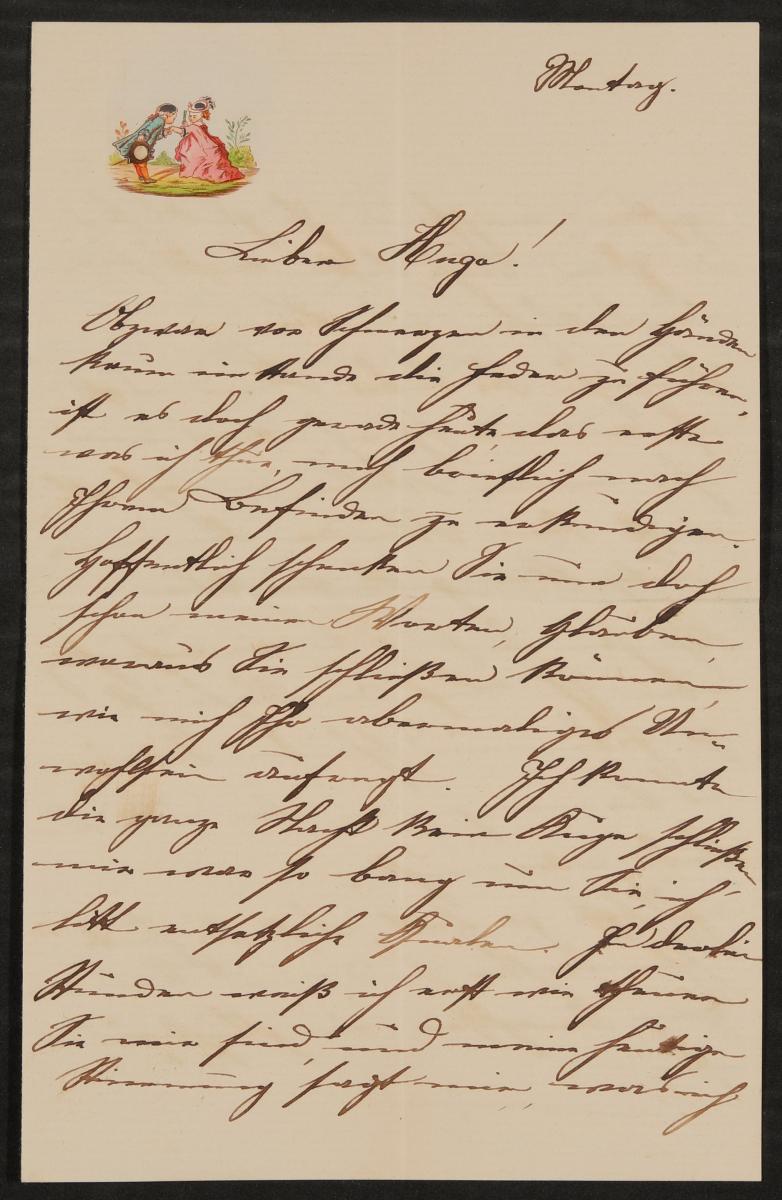 Montag.
Lieber Hugo!
Obzwar vor Schmerzen in den Händen
kaum im stande die Feder zu führen,
ist es doch gerade heute das erste
was ich thue, mich brieflich nach
Ihrem Befinden zu erkundigen.
Hoffentlich schenken Sie nun doch
schon meinen Worten, Glauben,
woraus Sie schließen können,
wie mich Ihr abermaliges Un-
wohlsein aufregt. Ich konnte
die ganze Nacht kein Auge schließen
mir war so bang um Sie, ich
litt entsetzliche Qualen. In derlei
Stunden weiß ich erst wie theuer
Sie mir sind, und meine heutige
Stimmung sagt mir, was ich